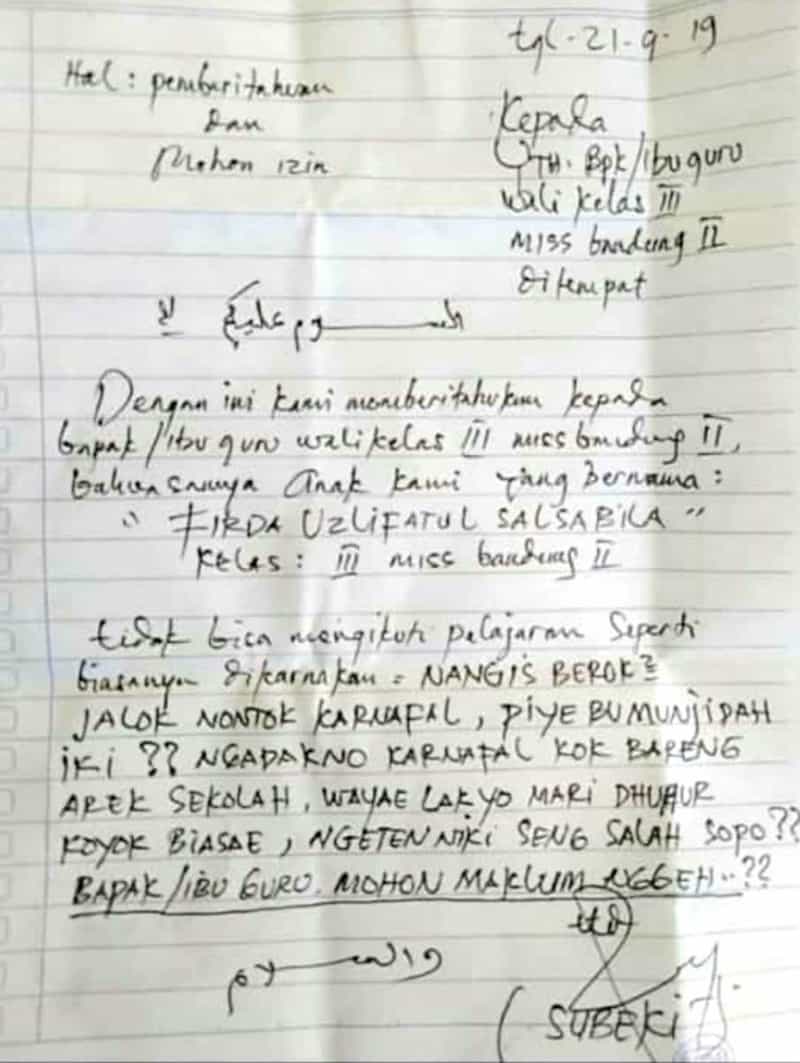 tgl. 21-9-19
Hal : pemberitahuan
dan
Mohon izin
Kepada
YTH. Bpk/ibu guru
wali kelas III
MISS bandung II
Ditempat
السلام عليكم
Dengan ini kami memberitahukan kepada
bapak/ibu guru wali kelas III miss bandung II,
bahwasannya anak kami yang bernama :
" FIRDA UZLIFATUL SALSABILA "
Kelas : III miss bandung II
tidak bisa mengikuti pelajaran seperti
biasanya dikarnakan = NANGIS BEROK²
JALOK NONTOK KARNAFAL, PIYE BU MUNJIDAH
iKi ?? NGADAKNO KARNAFAL KOK BARENG
AREK SEKOLAH, WAYAE LAK YO MARI DHUHUR
KOYOK BIASAE, NGETEN NIKI SENG SALAH SOPO??
BAPAK/IBU GURU. MOHON MAKLUM NGGEH..??
ttd
والسلام
( SUBEKI